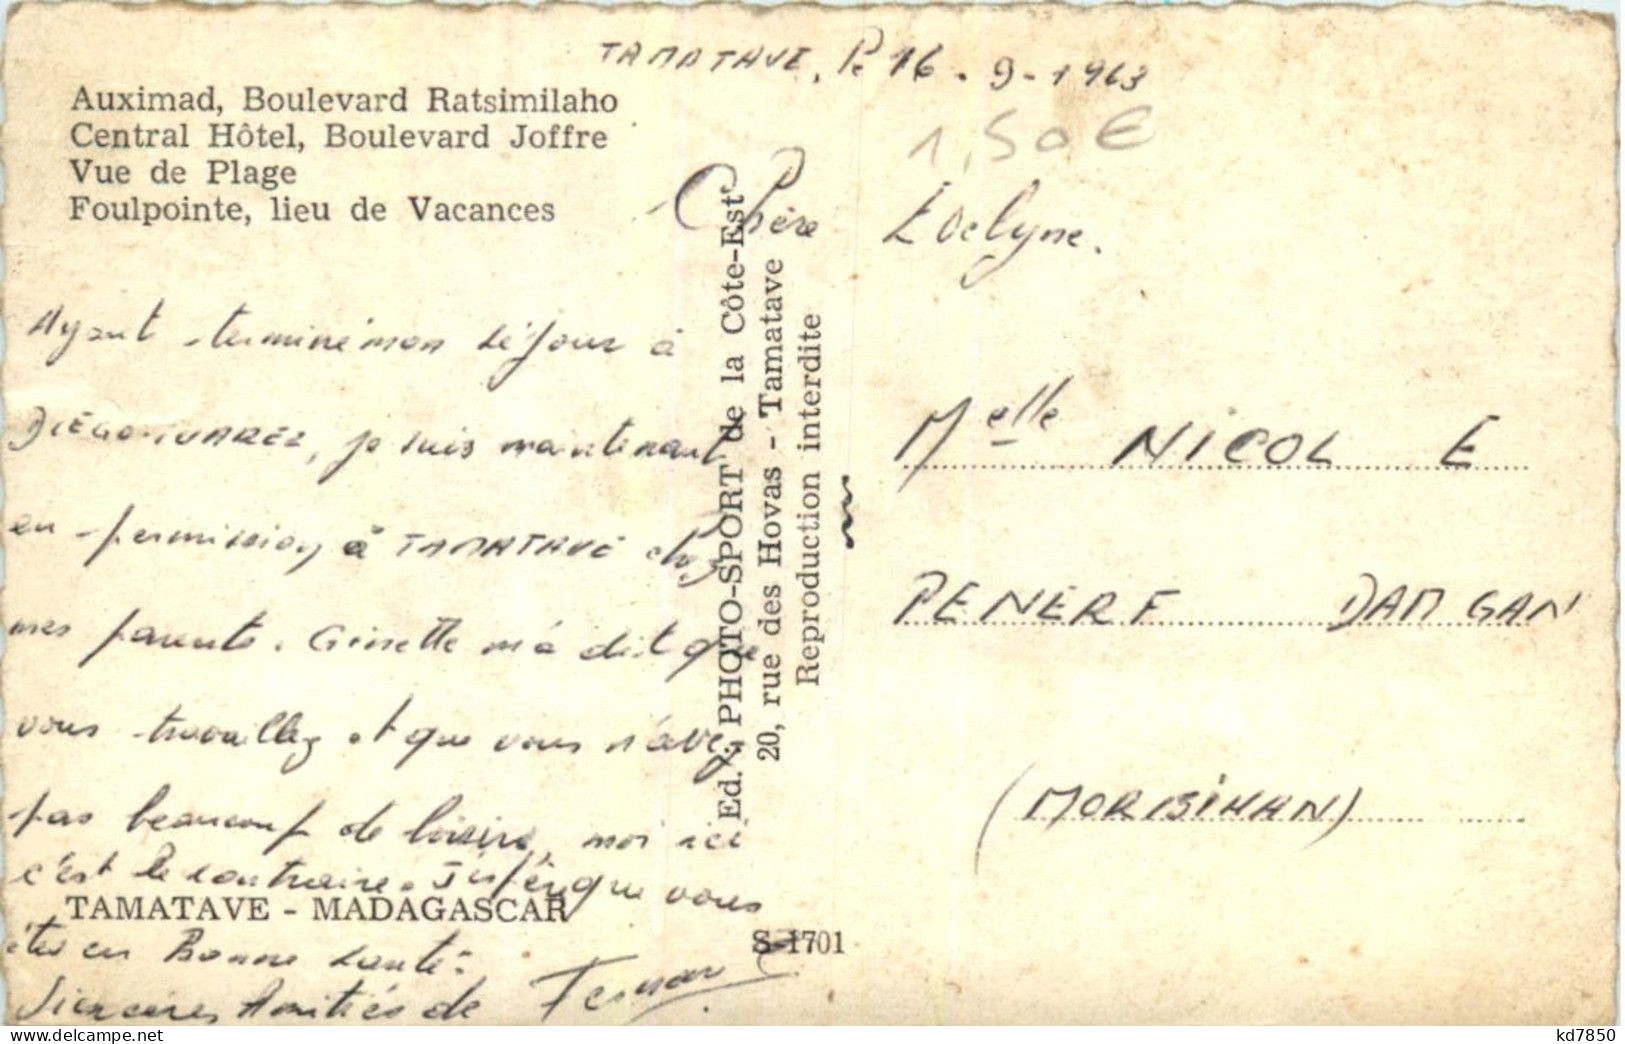 TAMATAVE, le 16-9-1963
1,50€
Auximad, Boulevard Ratsimilaho
Central Hôtel, Boulevard Joffre
Vue de Plage
Foulpointe, lieu de Vacances
Chère Evelyne.
Ayant terminé mon séjour à
DIÉGO-SUAREZ, je suis maintenant
en permission à TAMATAVE chez
mes parents. Ginette m'a dit que
vous travaillez et que vous n'avez
pas beaucoup de loisirs, moi ici
c'est le contraire. J'espère que vous
êtes en Bonne santé.
Sincères Amitiés de
TAMATAVE - MADAGASCAR
S-1701
Ed. : PHOTO-SPORT de la Côte-Est
20, rue des Hovas - Tamatave
Reproduction interdite
Melle NICOL E
PENERF DAMGAN
(MORBIHAN)
kd7850